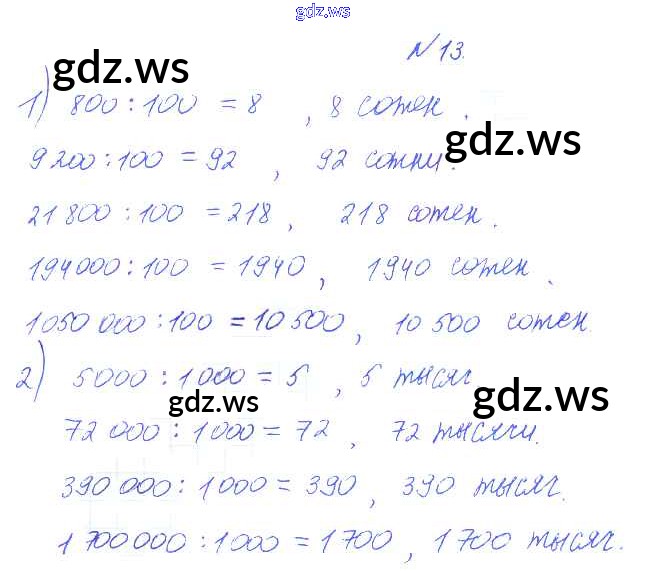 gdz.ws
№ 13.
gdz.ws
1) 800 : 100 = 8 , 8 сотен .
gdz.ws
9 200 : 100 = 92 , 92 сотни .
21 800 : 100 = 218 , 218 сотен .
194000 : 100 = 1940 , 1940 сотен .
1050 000 : 100 = 10 500 , 10 500 сотен .
2) 5000 : 1 000 = 5 , 5 тысяч
gdz.ws gdz.ws
72 000 : 1 000 = 72 , 72 тысячи .
390 000 : 1 000 = 390 , 390 тысяч .
1 700 000 : 1 000 = 1 700 , 1 700 тысяч .